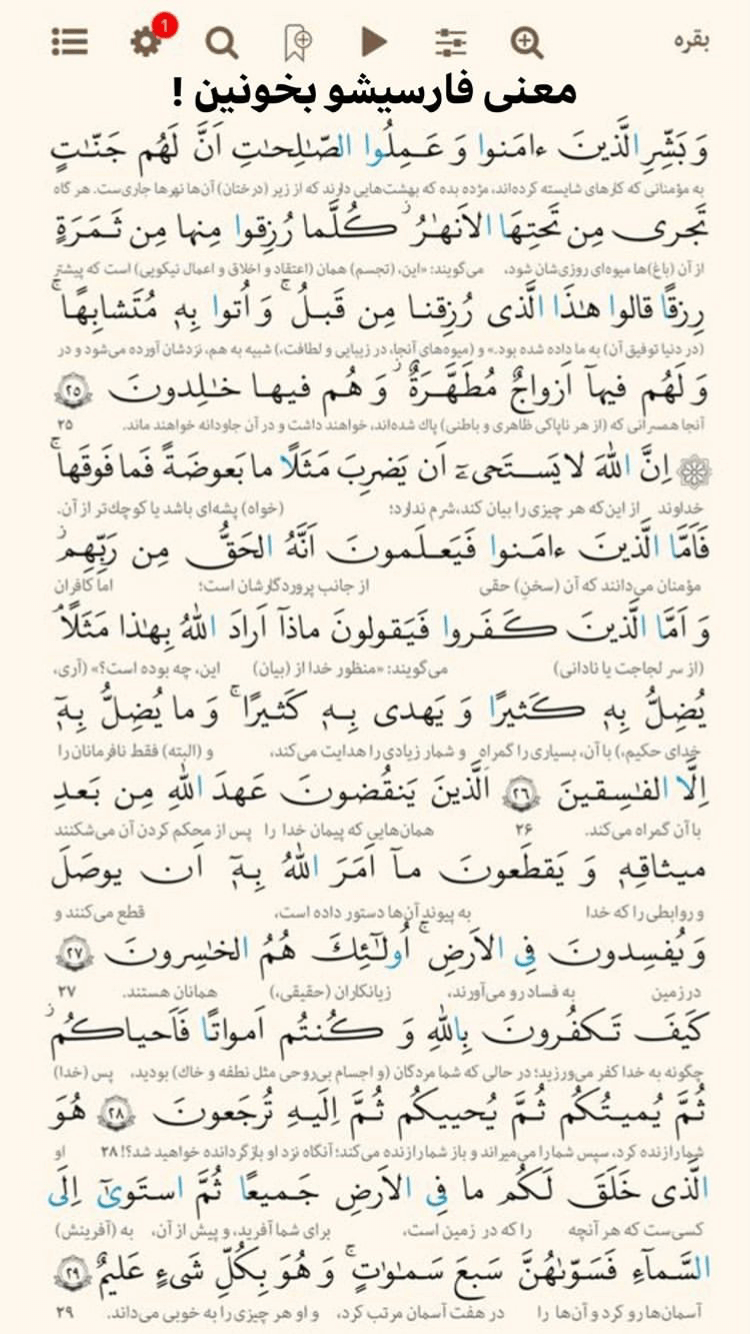 بقره
1
معنی فارسیشو بخونین !
وَ بَشِّرِ الَّذینَ ءامَنوا وَ عَمِلُوا الصّٰلِحٰتِ اَنَّ لَهُم جَنّٰتٍ
به مؤمنانی که کارهای شایسته کرده‌اند، مژده بده که بهشت‌هایی دارند که از زیر (درختان) آن‌ها نهرها جاری‌ست. هر گاه
تَجری مِن تَحتِهَا الاَنهٰرُ ۖ کُلَّما رُزِقوا مِنها مِن ثَمَرَةٍ
از آن (باغ)ها میوه‌ای روزی‌شان شود، می‌گویند: «این، (تجسم) همان (اعتقاد و اخلاق و اعمال نیکویی) است که پیشتر
رِزقًا قالوا هٰذَا الَّذی رُزِقنا مِن قَبلُ ۚ وَ اُتوا بِهٖ مُتَشابِهًا ۚ
(در دنیا توفیق آن) به ما داده شده بود.» و (میوه‌های آنجا، در زیبایی و لطافت،) شبیه به هم، نزدشان آورده می‌شود و در
وَ لَهُم فیهآ اَزواجٌ مُطَهَّرَةٌ ۖ وَ هُم فیها خٰلِدونَ ٢٥
آنجا همسرانی که (از هر ناپاکی ظاهری و باطنی) پاك شده‌اند، خواهند داشت و در آن جاودانه خواهند ماند. ۲۵
اِنَّ اللّٰهَ لا یَستَحیۦٓ اَن یَضرِبَ مَثَلًا ما بَعوضَةً فَما فَوقَها ۚ
خداوند از این‌که هر چیزی را بیان کند، شرم ندارد؛ (خواه) پشه‌ای باشد یا کوچك‌تر از آن.
فَاَمَّا الَّذینَ ءامَنوا فَیَعلَمونَ اَنَّهُ الحَقُّ مِن رَبِّهِم ۖ
مؤمنان می‌دانند که آن (سخن) حقی از جانب پروردگارشان است؛ اما کافران
وَ اَمَّا الَّذینَ کَفَروا فَیَقولونَ ماذآ اَرادَ اللّٰهُ بِهٰذا مَثَلًا ۘ
(از سر لجاجت یا نادانی) می‌گویند: «منظور خدا از (بیان) این، چه بوده است؟» (آری،
یُضِلُّ بِهٖ کَثیرًا وَ یَهدی بِهٖ کَثیرًا ۚ وَ ما یُضِلُّ بِهٖٓ
خدای حکیم،) با آن، بسیاری را گمراه و شمار زیادی را هدایت می‌کند، و (البته) فقط نافرمانان را
اِلَّا الفٰسِقینَ ٢٦ اَلَّذینَ یَنقُضونَ عَهدَ اللّٰهِ مِن بَعدِ
با آن گمراه می‌کند. ۲۶ همان‌هایی که پیمان خدا را پس از محکم کردن آن می‌شکنند
میثاقِهٖ وَ یَقطَعونَ مآ اَمَرَ اللّٰهُ بِهٖٓ اَن یوصَلَ
و روابطی را که خدا به پیوند آن‌ها دستور داده است، قطع می‌کنند و
وَ یُفسِدونَ فِی الاَرضِ ۚ اُولٰٓئِكَ هُمُ الخٰسِرونَ ٢٧
در زمین به فساد رو می‌آورند، زیانکاران (حقیقی،) همانان هستند. ۲۷
کَیفَ تَکفُرونَ بِاللّٰهِ وَ کُنتُم اَمواتًا فَاَحیاکُم ۖ
چگونه به خدا کفر می‌ورزید؛ در حالی که شما مردگان (و اجسام بی‌روحی مثل نطفه و خاك) بودید، پس (خدا)
ثُمَّ یُمیتُکُم ثُمَّ یُحییکُم ثُمَّ اِلَیهِ تُرجَعونَ ٢٨ هُوَ
شما را زنده کرد، سپس شما را می‌میراند و باز شما را زنده می‌کند؛ آنگاه نزد او بازگردانده خواهید شد؟! ۲۸ او
الَّذی خَلَقَ لَکُم ما فِی الاَرضِ جَمیعًا ثُمَّ استَویٰٓ اِلَی
کسی‌ست که هر آنچه را که در زمین است، برای شما آفرید، و پیش از آن، به (آفرینش)
السَّمآءِ فَسَوّٰىهُنَّ سَبعَ سَمٰوٰتٍ ۚ وَ هُوَ بِکُلِّ شَیءٍ عَلیمٌ ٢٩
آسمان‌ها رو کرد و آن‌ها را در هفت آسمان مرتب کرد، و او هر چیزی را به خوبی می‌داند. ۲۹